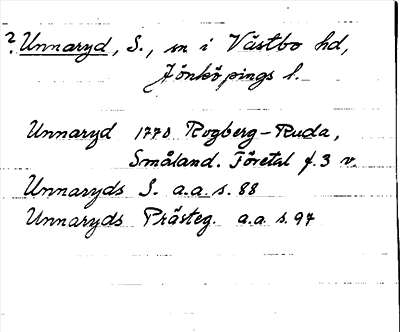 ? Unnaryd, S., sn i Västbo hd,
Jönköpings l.
Unnaryd 1770 Rogberg-Ruda,
Småland. Företal f. 3 v.
Unnaryds S. a.a. s. 88
Unnaryds Prästeg. a.a s. 97